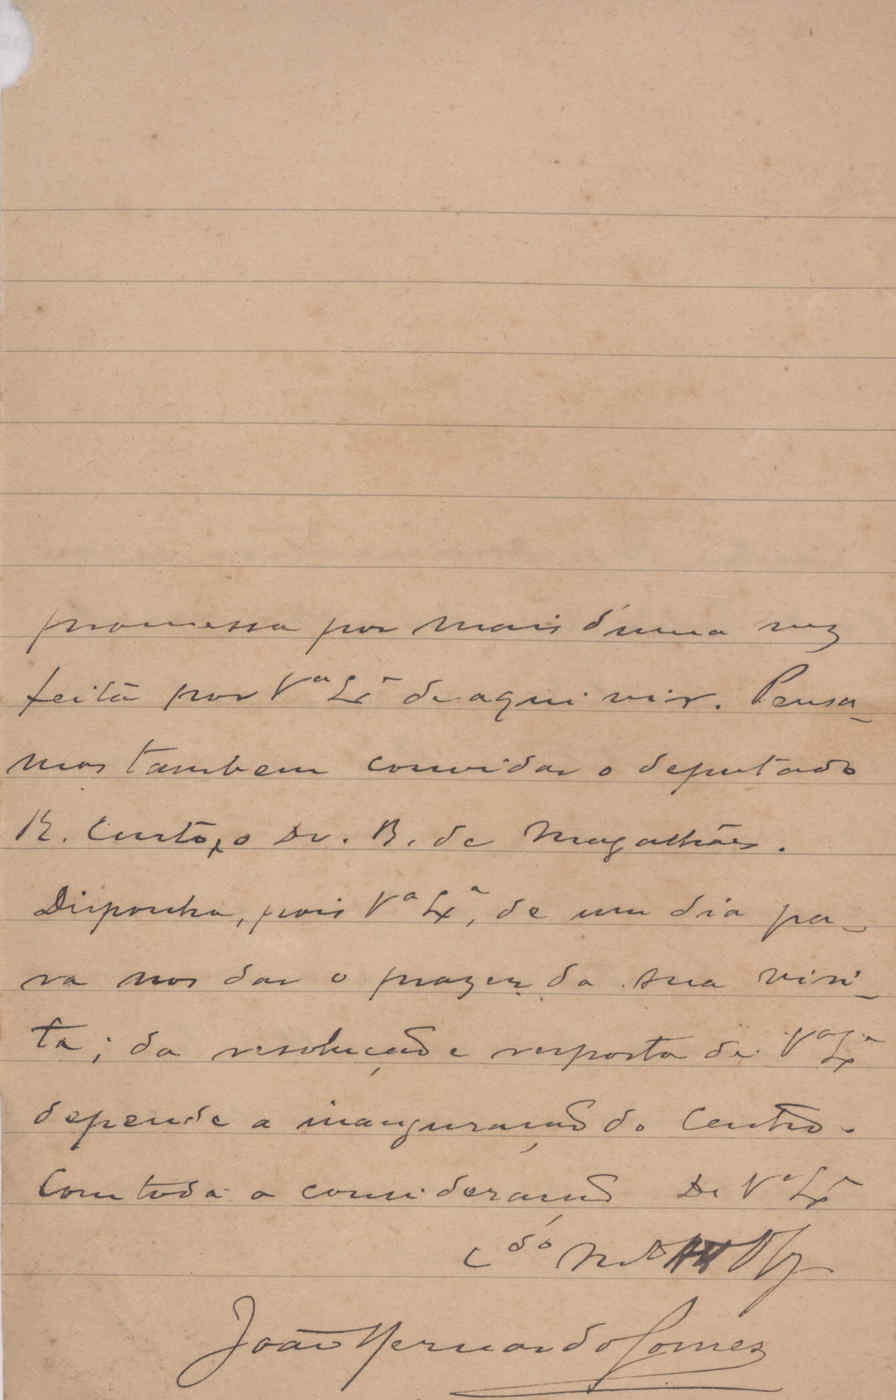 promessa por mais d'uma vez
feita por Vª Exª de aqui vir. Pensa-
mos tambem convidar o deputado
B. de Magalhães.
Disponha, pois Vª Exª, de um dia pa-
ra nos dar o prazer da sua visi-
ta; da resolução e resposta de Vª Exª
depende a inauguração do Centro.
Com toda a consideração De Vª Exª
João Fernando Gomes